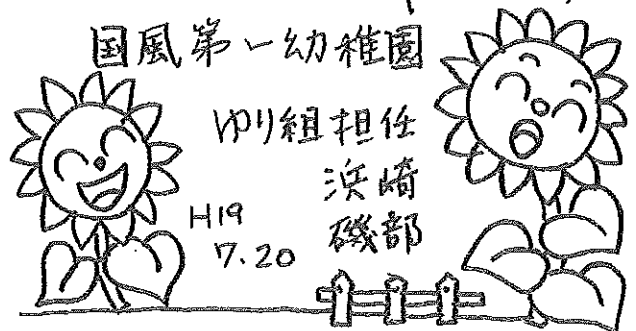 国風第一幼稚園
ゆり組担任
浜崎
磯部
H19
7.20